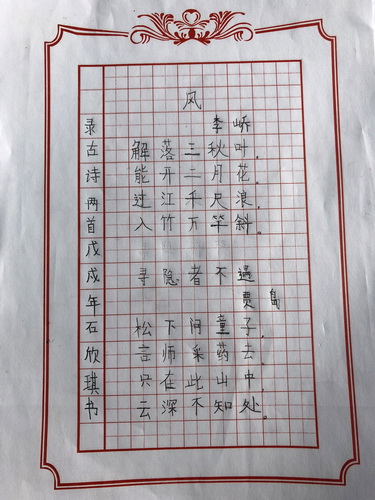 风
李峤
解落三秋叶，
能开二月花。
过江千尺浪，
入竹万竿斜。
寻隐者不遇
贾岛
松下问童子，
言师采药去。
只在此山中，
云深不知处。
录古诗两首戊戌年石欣琪书